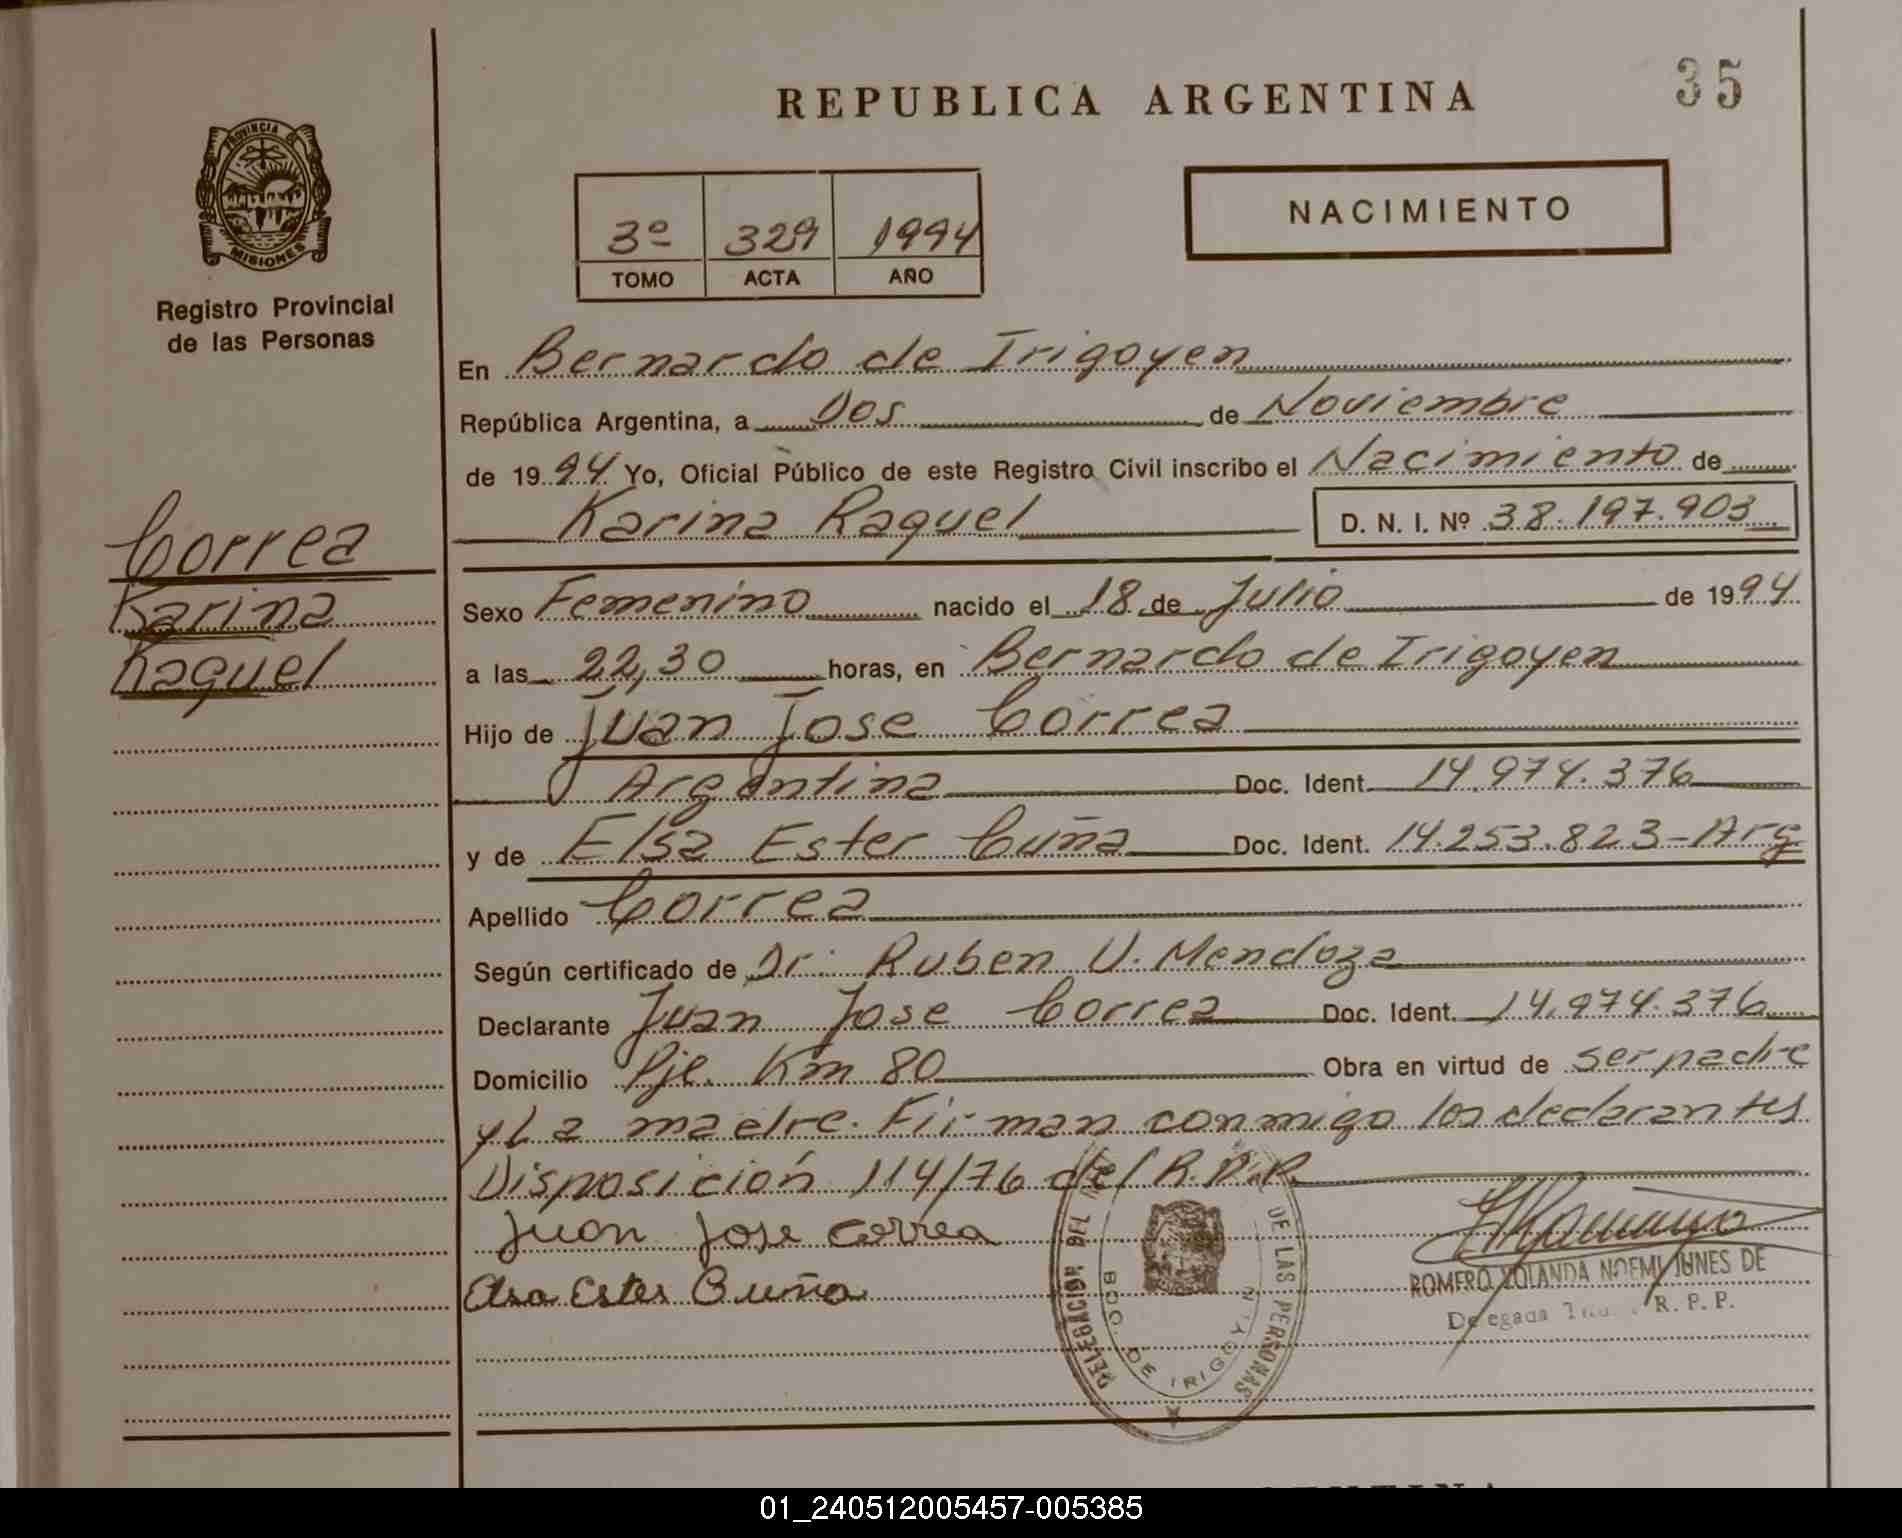 REPUBLICA ARGENTINA
35
PROVINCIA DE
MISIONES
Registro Provincial
de las Personas
3º 329 1994
TOMO ACTA AÑO
NACIMIENTO
En Bernardo de Irigoyen
República Argentina, a Dos de Noviembre
de 1994 Yo, Oficial Público de este Registro Civil inscribo el Nacimiento de
Karina Raquel D. N. I. Nº 38.197.903
Correa
Karina
Raquel
Sexo Femenino nacido el 18 de Julio de 1994
a las 22,30 horas, en Bernardo de Irigoyen
Hijo de Juan Jose Correa
Argentina Doc. Ident. 14.974.376
y de Elsa Ester Cuña Doc. Ident. 14.253.823-Arg
Apellido Correa
Según certificado de Dr. Ruben U. Mendoza
Declarante Juan Jose Correa Doc. Ident. 14.974.376
Domicilio Pje. Km 80 Obra en virtud de ser padre
y La madre. Firman conmigo los declarantes
Disposición 114/76 del R.P.P.
Juan Jose Correa
Elsa Ester Cuña
DELEGACION DEL DE LAS PERSONAS
BDO. DE IRIGOYEN
ROMERO, YOLANDA NOEMI JUNES DE
Delegada R. P. P.
01_240512005457-005385